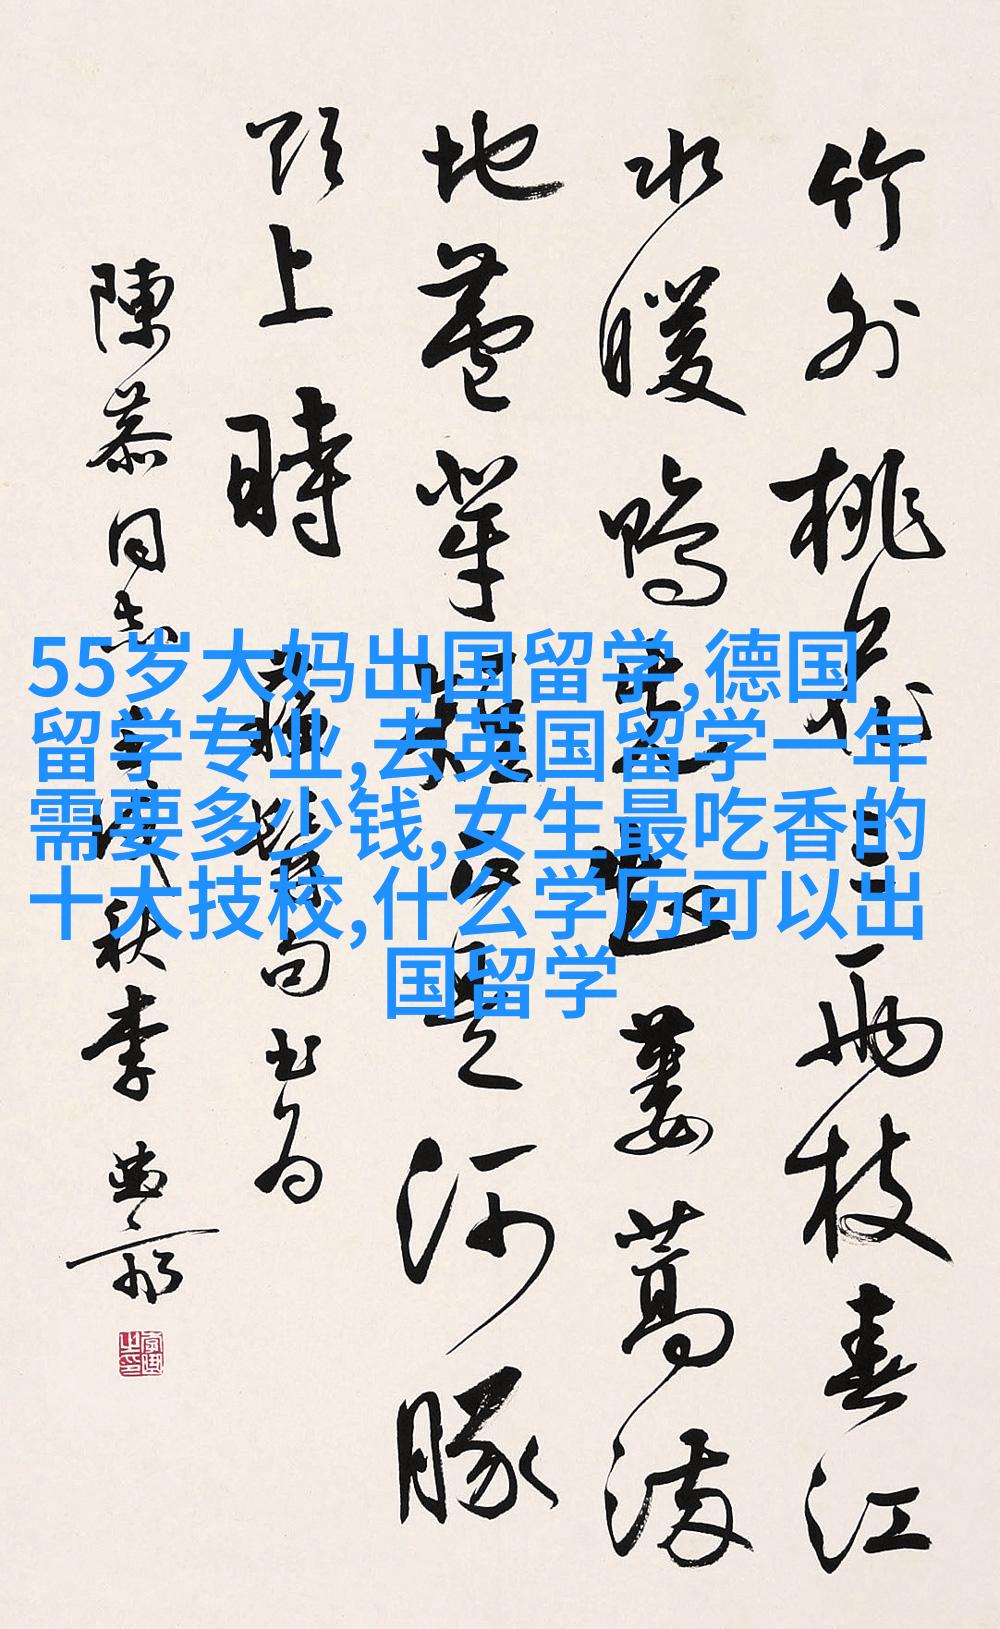 竹外桃花三兩枝春江
水暖鴨先知蔞蒿滿
地蘆芽短正是河豚
欲上時 蘇髯句書為
陳慕同志 秋李
55岁大妈出国留学,德国
留学专业,去英国留学一年
需要多少钱,女生最吃香的
十大技校,什么学历可以出
国留学